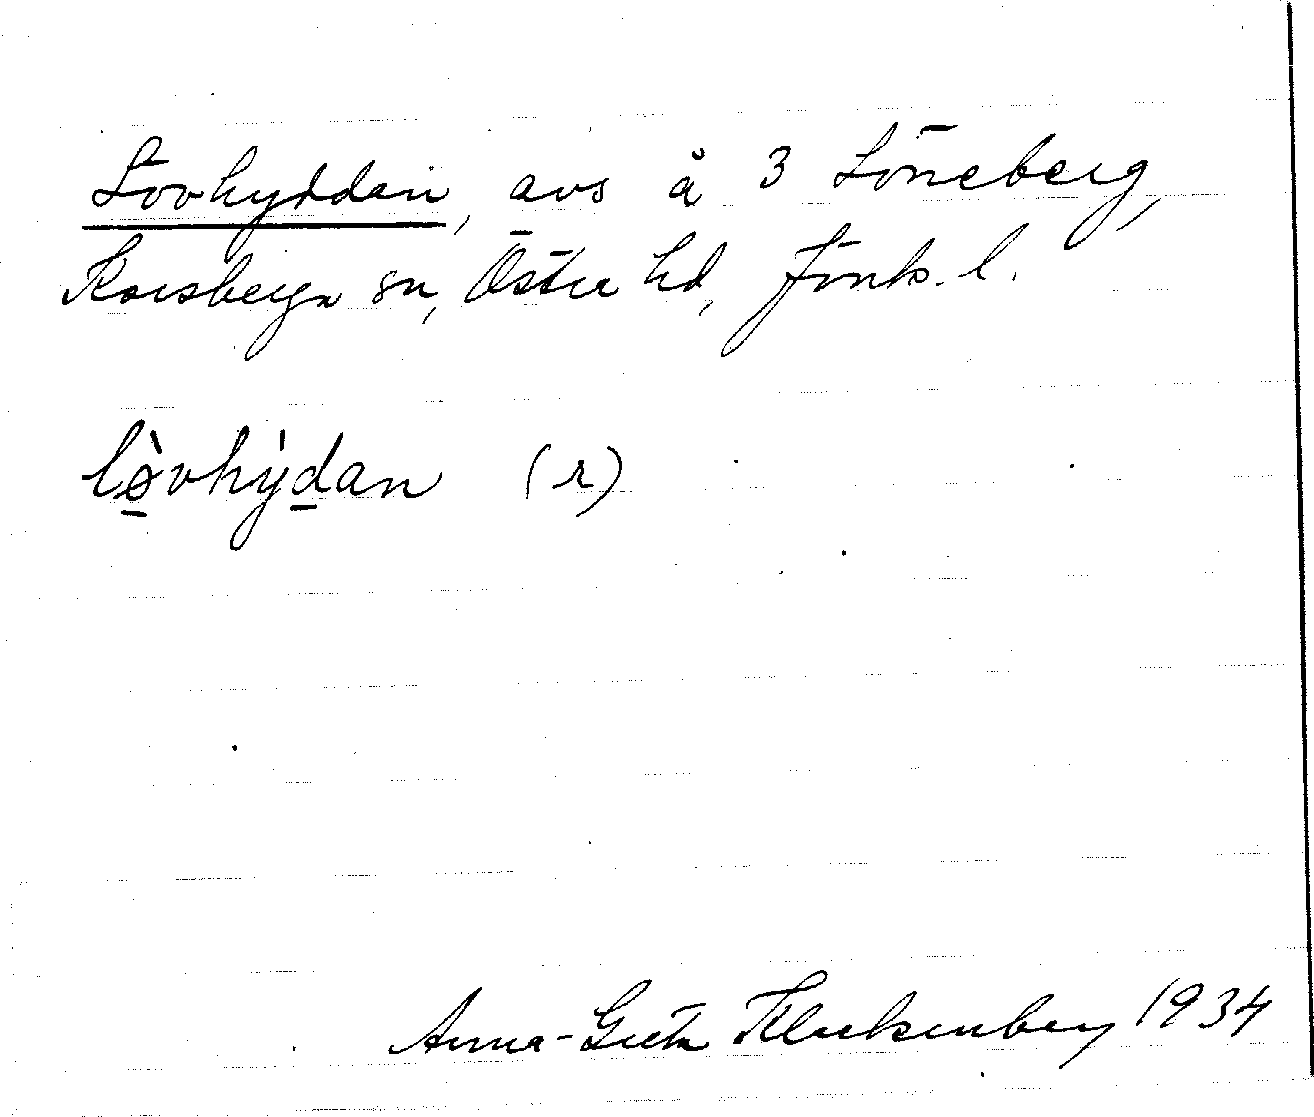 Lövhyddan, avs å 3 Löneberg,
Korsberga sn, Östra hd, Jönk. l.
lò̲vhỳd̲an (r)
Anna-Greta Kluckenberg 1934